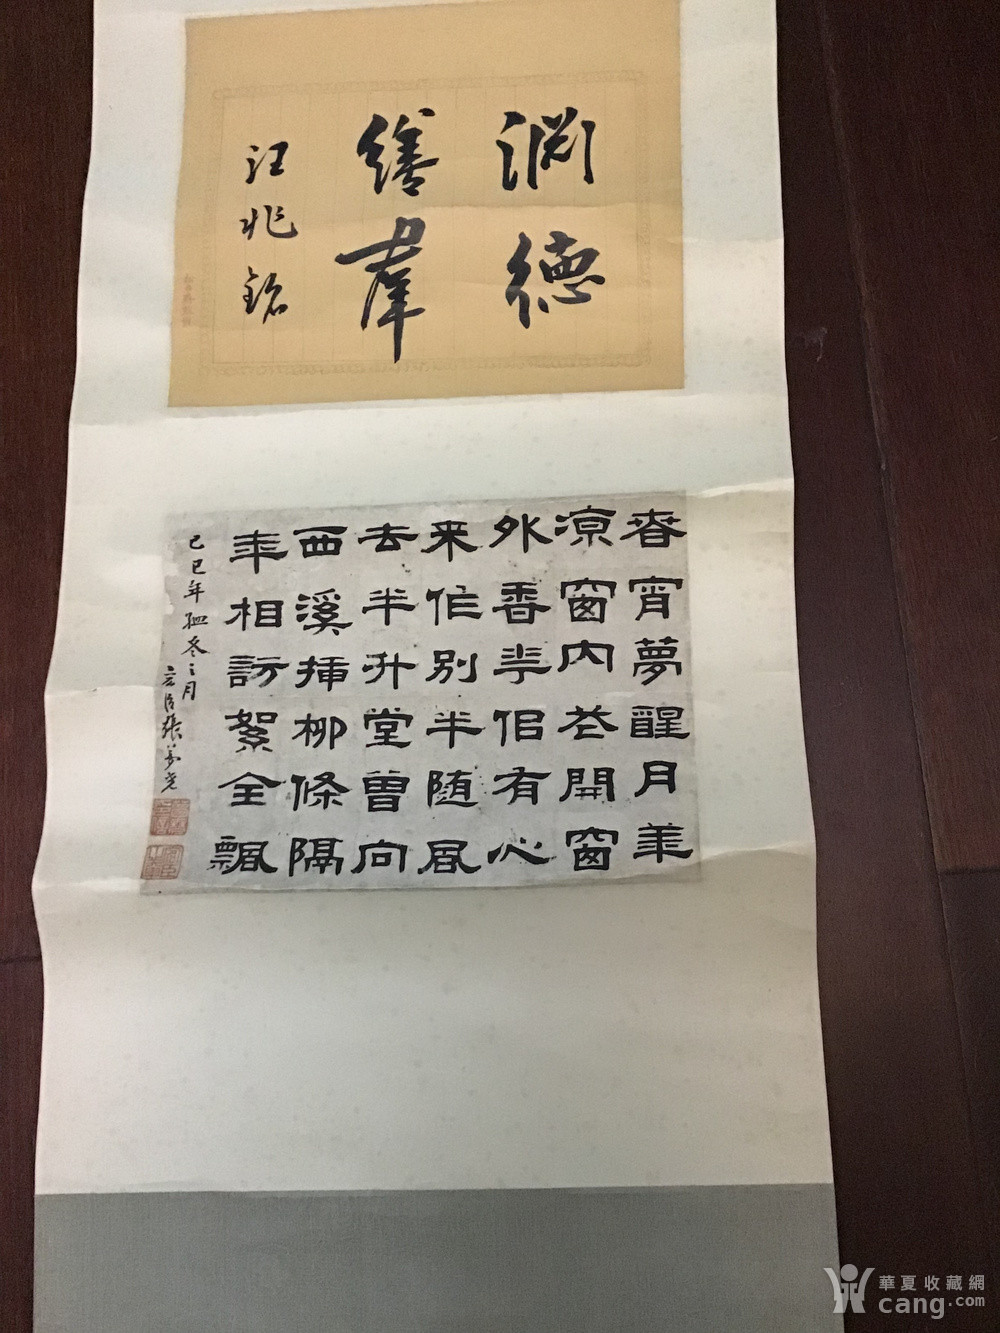 渊德
繕
汪兆銘
春宵夢醒月華
凉窗内花開窗
外香半侣有心
来作别半随風
去半升堂曾向
西溪插柳條隔
年相訪絮全飄
己巳年孟冬之月
張
華夏收藏網
cang.com